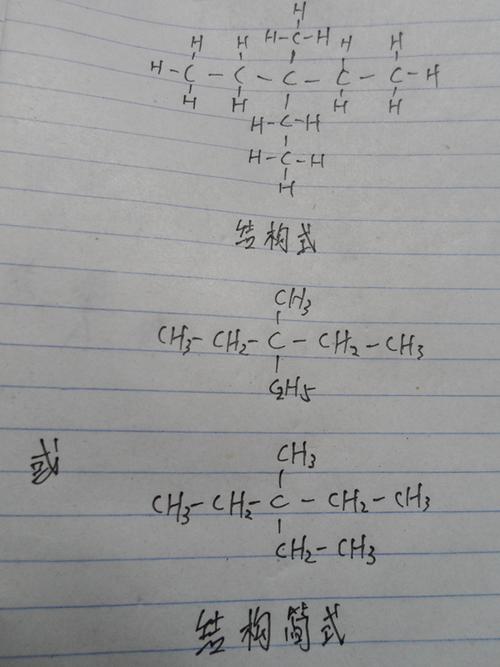 H
H H H-C-H H H
H-C-C-C-C-C-H
H H H H
H-C-H
H-C-H
H
结构式
CH3
CH3-CH2-C-CH2-CH3
C2H5
或
CH3
CH3-CH2-C-CH2-CH3
CH2-CH3
结构简式